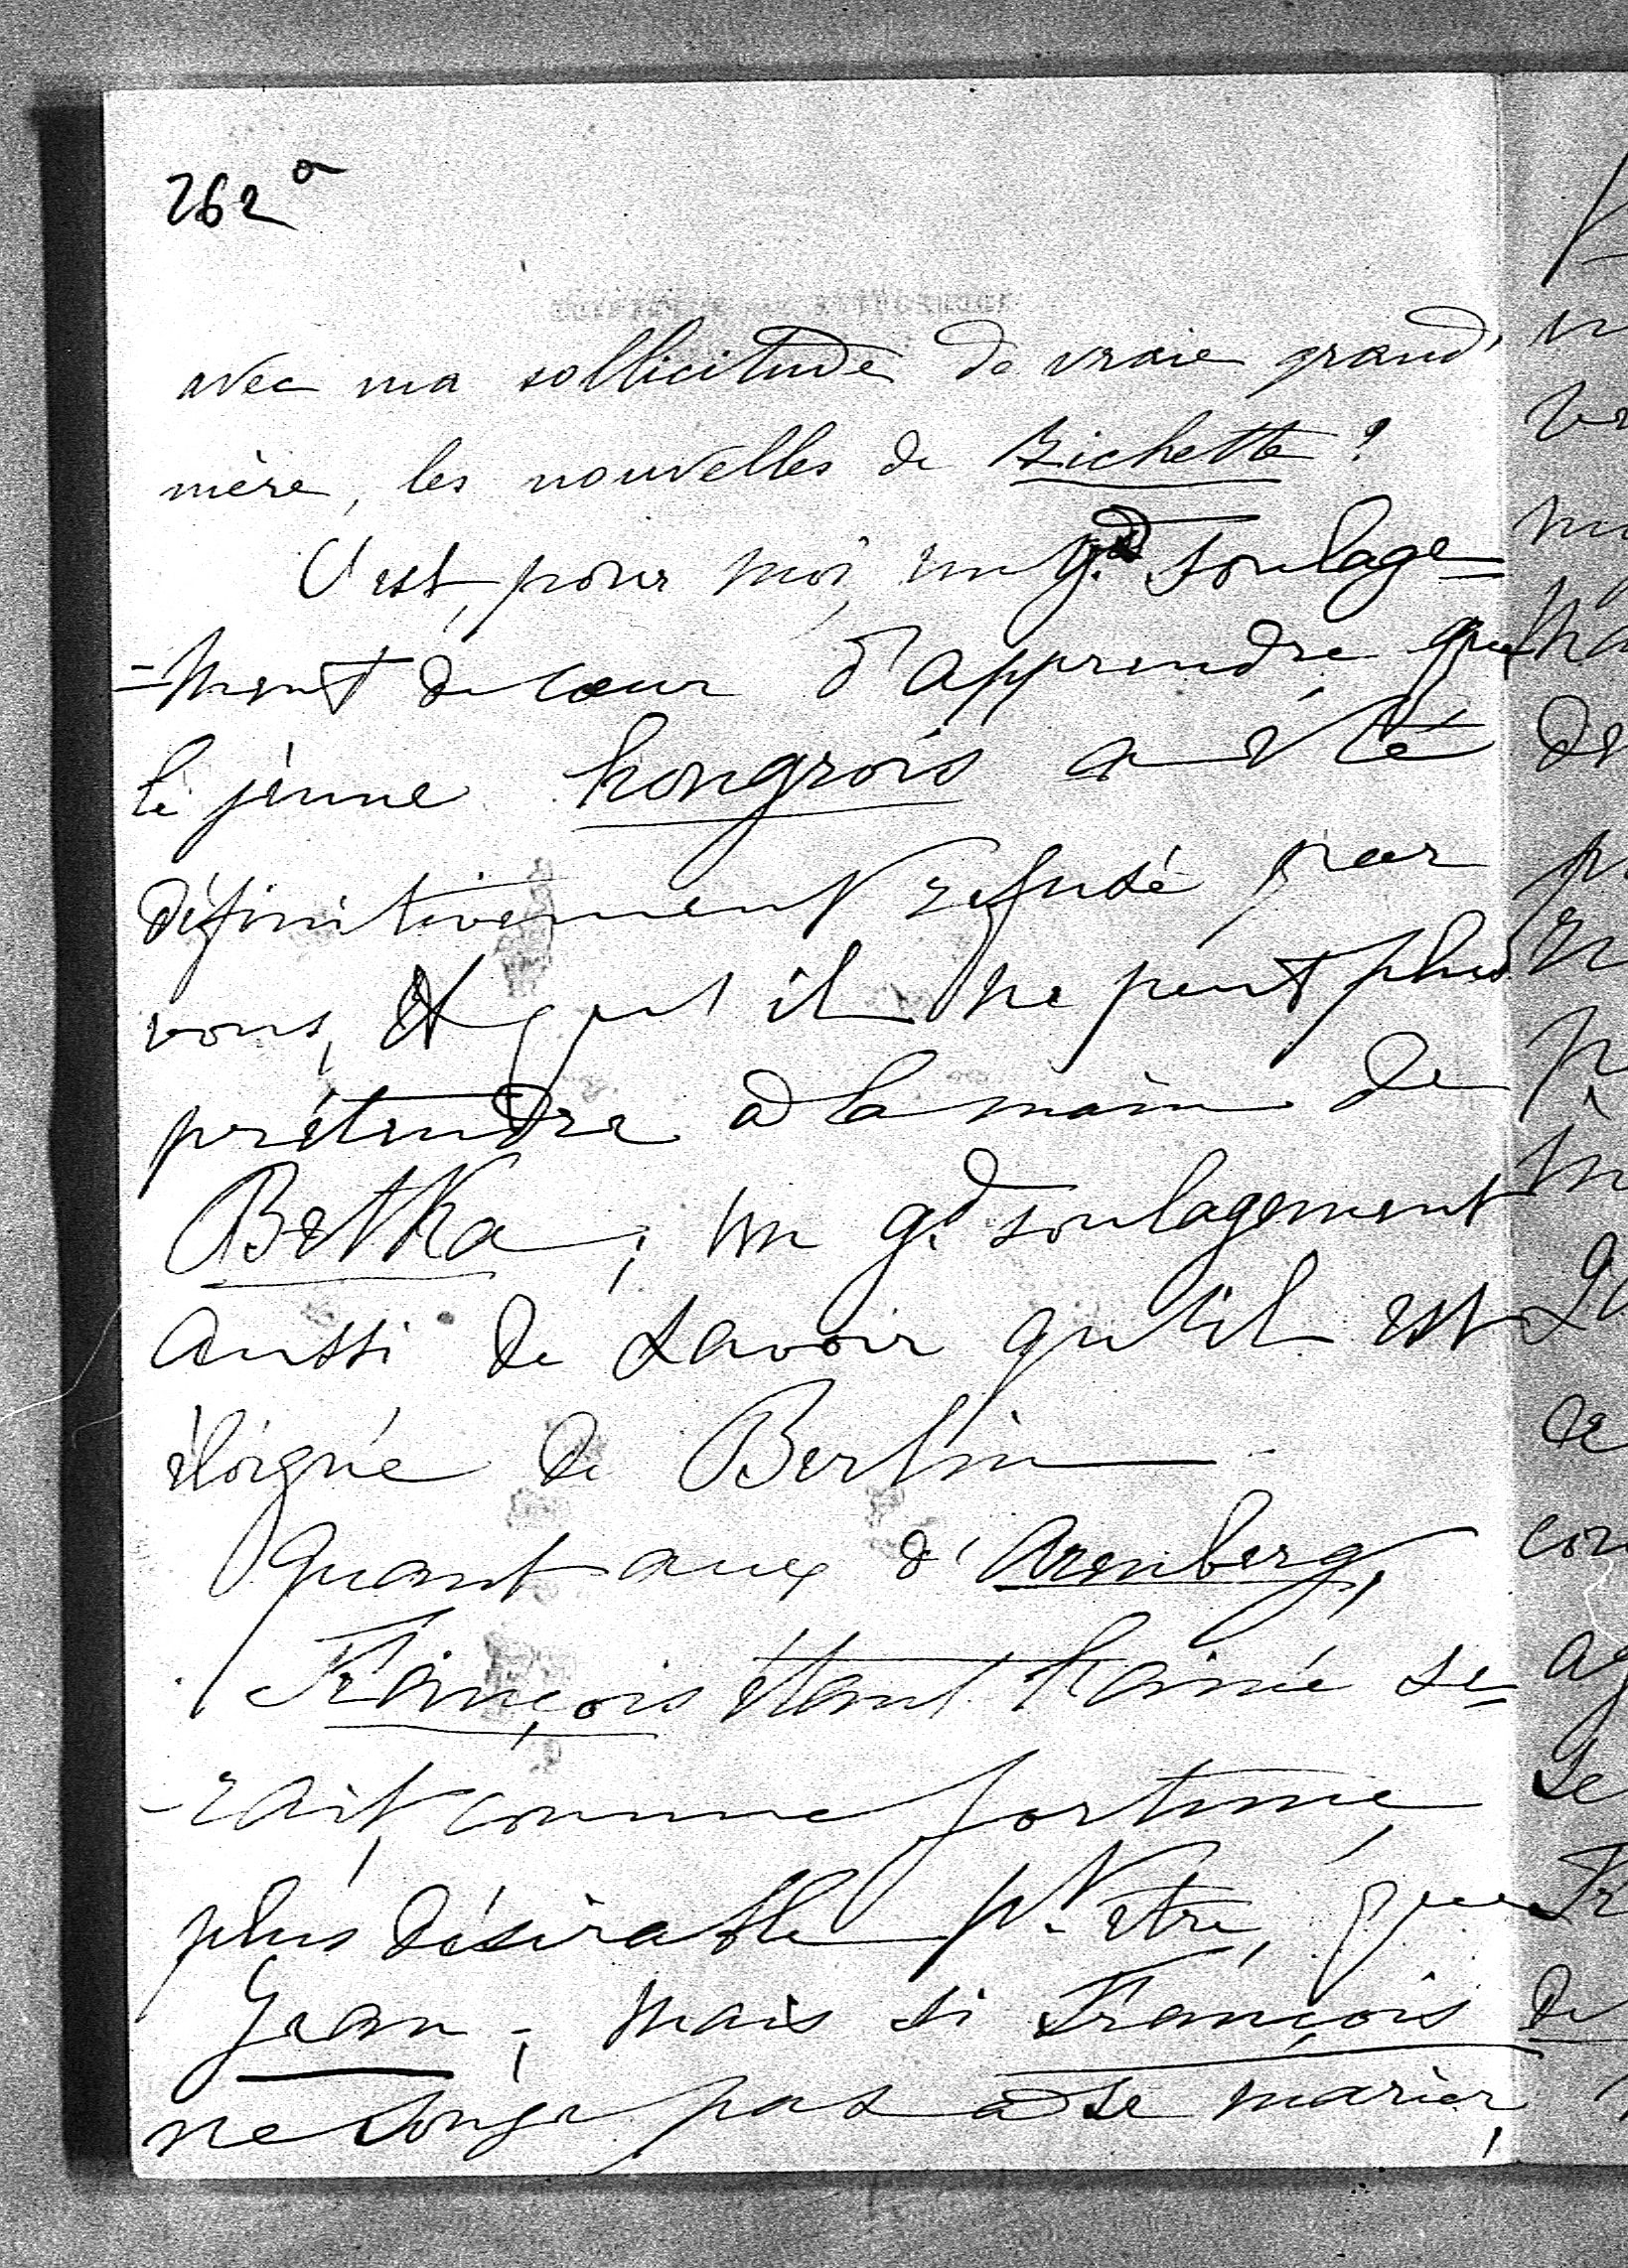 262a
avec ma sollicitude de vraie grand'
mère, les nouvelles de Bichette ?
C'est, pour moi, un gd soulage=
=ment de cœur d'apprendre que
le jeune hongrois a été
définitivement refusé par
vous, et qu'il ne peut plus
prétendre à la main de
Betka ; un gd soulagement
aussi de savoir qu'il est
éloigné de Berlin
Quant aux d'Arenberg,
François étant l'ainé se=
-rait, comme fortune,
plus désirable pt être, que
Jean ; mais si François
ne songe pas à se marier,